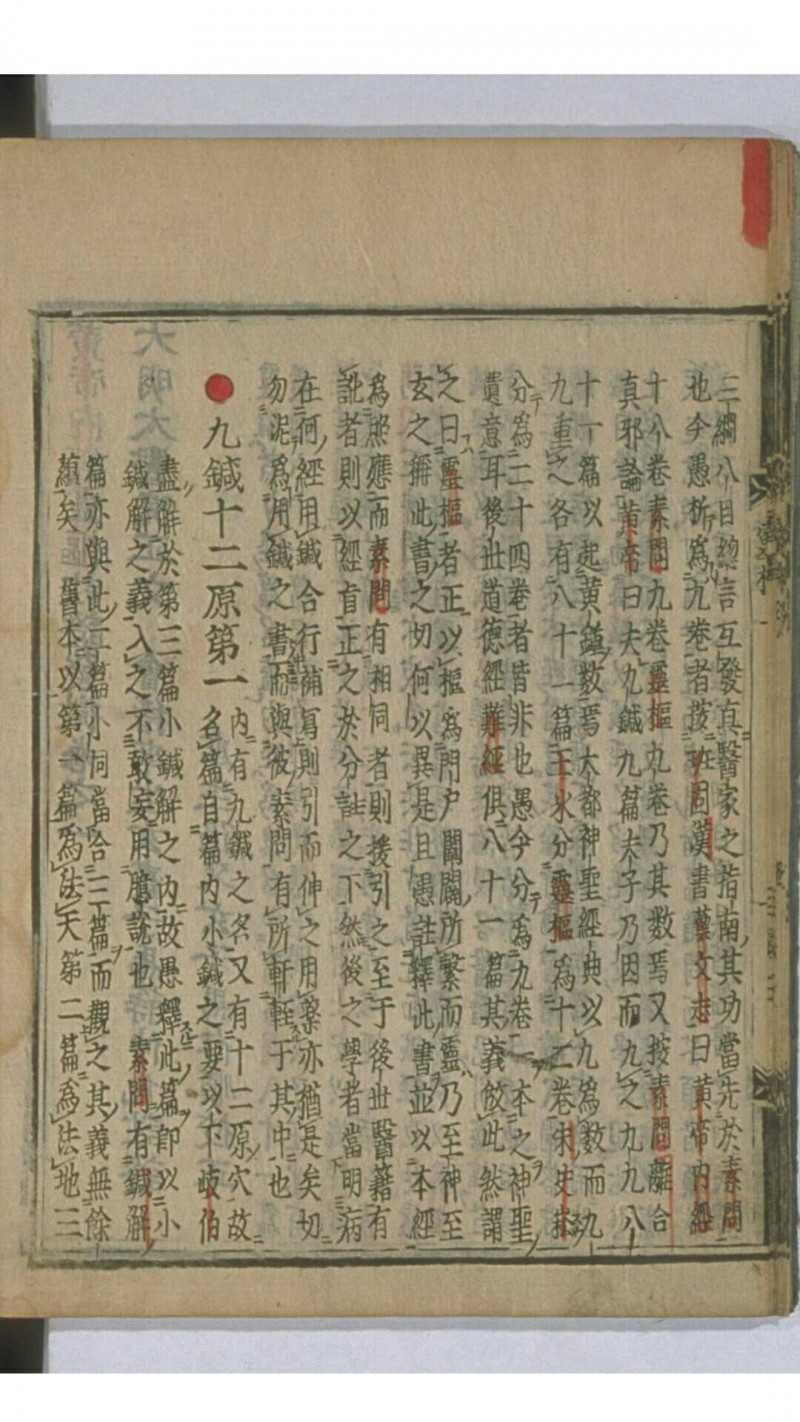 三綱八目總言互發真醫家之指南其功當先於素問
也今愚析為九卷者按班固漢書藝文志曰黃帝內經
十八卷素問九卷靈樞九卷乃其數焉又按素問離合
真邪論黃帝曰夫九鍼九篇夫子乃因而九之九九八
十一篇以起黃鍾數焉大都神聖經典以九為數而九
九重之各有八十一篇王氷分靈樞為十二卷宋史崧
分為二十四卷者皆非也愚今分為九卷一本之神聖
遺意耳後世道德經難經俱八十一篇其義倣此然謂
之曰靈樞者正以樞為門户闔闢所繫而靈乃至神至
玄之稱此書之切何以異是且愚註釋此書並以本經
為照應而素問有相同者則援引之至于後世醫籍有
訛者則以經旨正之於分註之下然後之學者當明病
在何經用鍼合行補寫則引而伸之用藥亦猶是矣切
勿泥為用鍼之書而與彼素問有所軒輊于其中也
九鍼十二原第一
內有九鍼之名又有十二原穴故
名篇自篇內小鍼之要以下岐伯
盡解於第三篇小鍼解之內故愚釋此篇即以小
鍼解之義入之不敢妄用臆說也 素問有鍼解
篇亦與此二篇小同當合三篇而觀之其義無餘
蘊矣 舊本以第一篇為法天第二篇為法地三